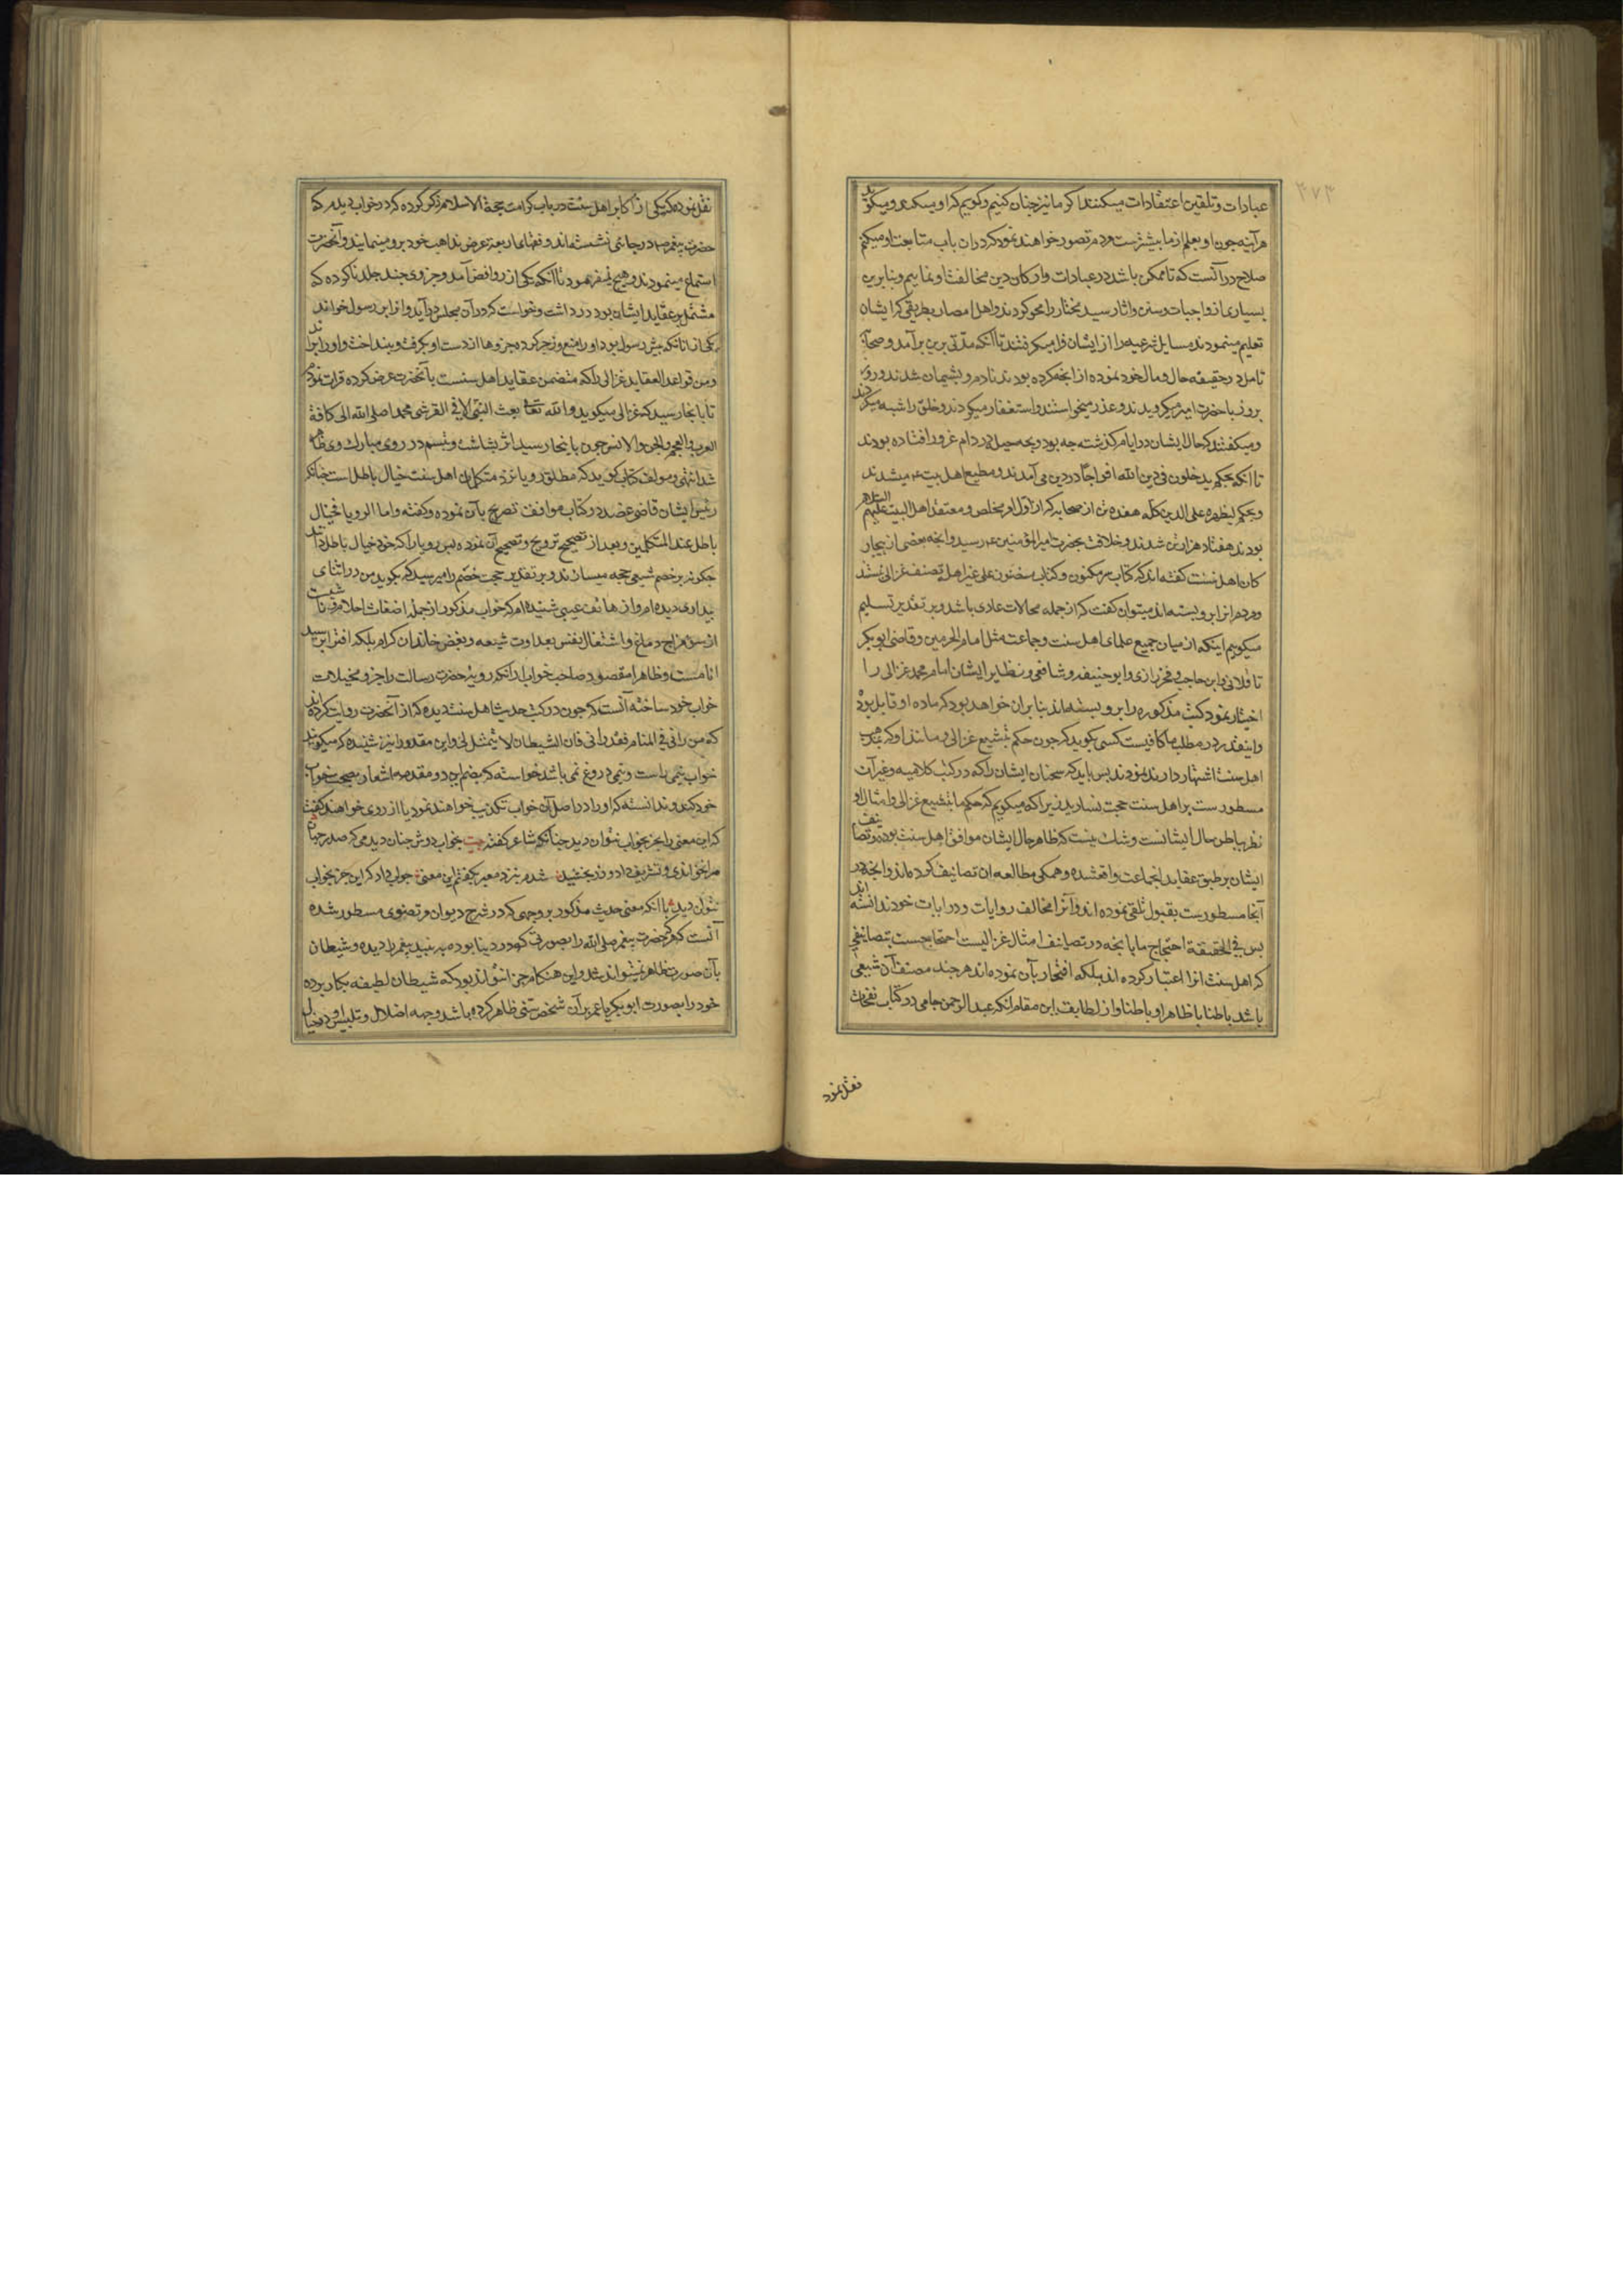 عبادات و تلقین اعتقادات میکنند اکر ما نیز چنان کنیم و کوییم که او میکند و میکوید
هر آینه چون او بعلم از ما بیشترست مردم تصور خواهند نمود که در ان باب متابعت او میکنیم
صلاح در آنست که تا ممکن باشد در عبادات و ارکان دین مخالفت او نماییم و بنا برین
بسیاری از واجبات و سنن و اثار سید مختار را محو کردند و اهل امصار بطریقی که ایشان
تعلیم مینمودند مسایل شرعیه را از ایشان فرا میکرفتند تا آنکه مدتی برین برآمد و صحابه
تامل در حقیقه حال و مال خود نموده از انچه کرده بودند نادم و پشیمان شدند و روز
بروز با حضرت امیر میکرویدند و عذر میخواستند و استغفار میکردند و خلق را شبه میکردند
و میکفتند که حال ایشان در ایام کذشته چه بود و بچه حیل در دام غرور افتاده بودند
تا انکه بحکم یدخلون فی دین الله افواجا در دین می آمدند و مطیع اهل بیت ع میشدند
و بحکم لیظهره علی الدین کله هفده تن از صحابه که از اول امر مخلص و معتقد اهل البیت علیهم السلام
بودند هفتاد هزار تن شدند و خلافت بحضرت امیر المؤمنین ع رسید و انچه بعضی از بیچار
کان اهل سنت کفته اند که کتاب سر مکنون و کتاب مضنون علی غیر اهله تصنیف غزالی نیستند
و مردم انرا برو بسته اند میتوان کفت که از جمله محالات عادی باشد و بر تقدیر تسلیم
میکوییم اینکه از میان جمیع علمای اهل سنت و جماعت مثل امام الحرمین و قاضی ابو بکر
باقلانی و ابن حاجب و فخر رازی و ابو حنیفه و شافعی و نظایر ایشان امام محمد غزالی را
اختیار نمود کتب مذکوره را برو بسته اند بنا بران خواهد بود که ماده او قابل بود
و اینقدر در مطلب ما کافیست کسی بکوید که چون حکم بتشیع غزالی و مانند او که بمذهب
اهل سنت اشتهار دارند نمودند پس باید که سخنان ایشان را که در کتب کلامیه و غیر آن
مسطورست بر اهل سنت حجت نسازید زیرا که میکویم که حکم ما بتشیع غزالی و امثال او
نظر بباطن حال ایشانست و شک نیست که ظاهر حال ایشان موافق اهل سنت بوده و تصانیف
ایشان بر طبق عقاید انجماعت واقعشده و همکی مطالعه ان تصانیف کرده اند و انچه در
آنجا مسطورست بقبول تلقی نموده اند و آنرا مخالف روایات و درایات خود ندانسته اند
پس فی الحقیقة احتجاج ما بانچه در تصانیف امثال غزالیست احتجاجیست بتصانیفی
که اهل سنت انرا اعتبار کرده اند بلکه افتخار بآن نموده اند هر چند مصنف آن شیعی
باشد باطنا یا ظاهرا و باطنا و از لطایف این مقام انکه عبد الرحمن جامی در کتاب نفحات
نقل نمود
نقل نموده که یکی از اکابر اهل سنت در باب کرامت حجة الاسلام ذکر کرده که در خواب دیدم که
حضرت پیغمبر ص در جائی نشسته اند و فقهای اربعه عرض مذاهب خود برو مینمایند و آنحضرت
استماع مینمودند و هیچ نمیفرمود تا انکه یکی از روافض آمد و جزوی چند جلد ناکرده که
مشتمل بر عقاید ایشان بود در داشت و خواست که در آن مجلس در آید و انرا بر رسول خواند
یکی از انانکه پیش رسول بود او را منع و زجر کرده جزوها از دست او بکرفت و بینداخت و او را براند
و من قواعد العقاید غزالی را که متضمن عقاید اهل سنت بآنحضرت عرض کرده قرات نمودم
تا بانجا رسید که غزالی میکوید و الله تعالی بعث النبی الامی القرشی محمدا صلی الله الی کافة
العرب و العجم و الجن و الانس چون بانجا رسید اثر بشاشت و تبسم در روی مبارک وی ظاهر
شد انتهی و مولف کتاب کوید که مطلق رویا نزد متکلمان اهل سنت خیال باطل است چنانکه
رئیس ایشان قاضی عضد در کتاب مواقف تصریح بآن نموده و کفته و اما الرویا فخیال
باطل عند المتکلمین و بعد از تصحیح ترویج و تصحیح آن نموده پس رویا را که خود خیال باطل دانند
چکونه بر خصم شیعی حجه میسازند و بر تقدیر حجت خصم را میرسد که بکوید من در اثنای
بیداری دیده ام و از هاتف غیبی شنیده ام که خواب مذکور از جمله اضغاث احلام و ناشیست
از سوء مزاج دماغ و اشتغال نفس بعداوت شیعه و بغض خاندان کرام بلکه افترا بر سید
انامست و ظاهرا مقصود صاحب خواب از انکه رویة حضرت رسالت را جزو مخیلات
خواب خود ساخته آنست که چون در کتب حدیث اهل سنت دیده که از آنحضرت روایت کرده اند
که من رانی فی المنام فقد رانی فان الشیطان لا یتمثل لی و این مقدمه را نیز شنیده که میکویند
خواب نیمی راست و نیمی دروغ نمی باشد خواسته که بضم این دو مقدمه اشعار بصحت خواب
خود کند و ندانسته که او را در اصل آن خواب تکذیب خواهند نمود یا از روی خواهند کفت
که این معنی را بجز بخواب نتوان دید چنانکه شاعر کفته بیت بخواب دوش چنان دیدمی که صدر جهان
مرا بخواندی و تشریف داد و زر بخشید شدم بنزد معبر بکفتم این معنی جواب داد که این جز بخواب
نتوان دید با انکه معنی حدیث مذکور بر وجهی که در شرح دیوان مرتضوی مسطور شده
آنست که هر که حضرت پیغمبر صلی الله را بصورتی که در دنیا بوده به بیند پیغمبر را دیده و شیطان
بآن صورت ظاهر نمیتواند شد و این هنکام چرا نتواند بود که شیطان لطیفه بکار برده
خود را بصورت ابو بکر یا عمر بر آن شخص سنی ظاهر کرده باشد و جهه اضلال و تلبیس او در خیال